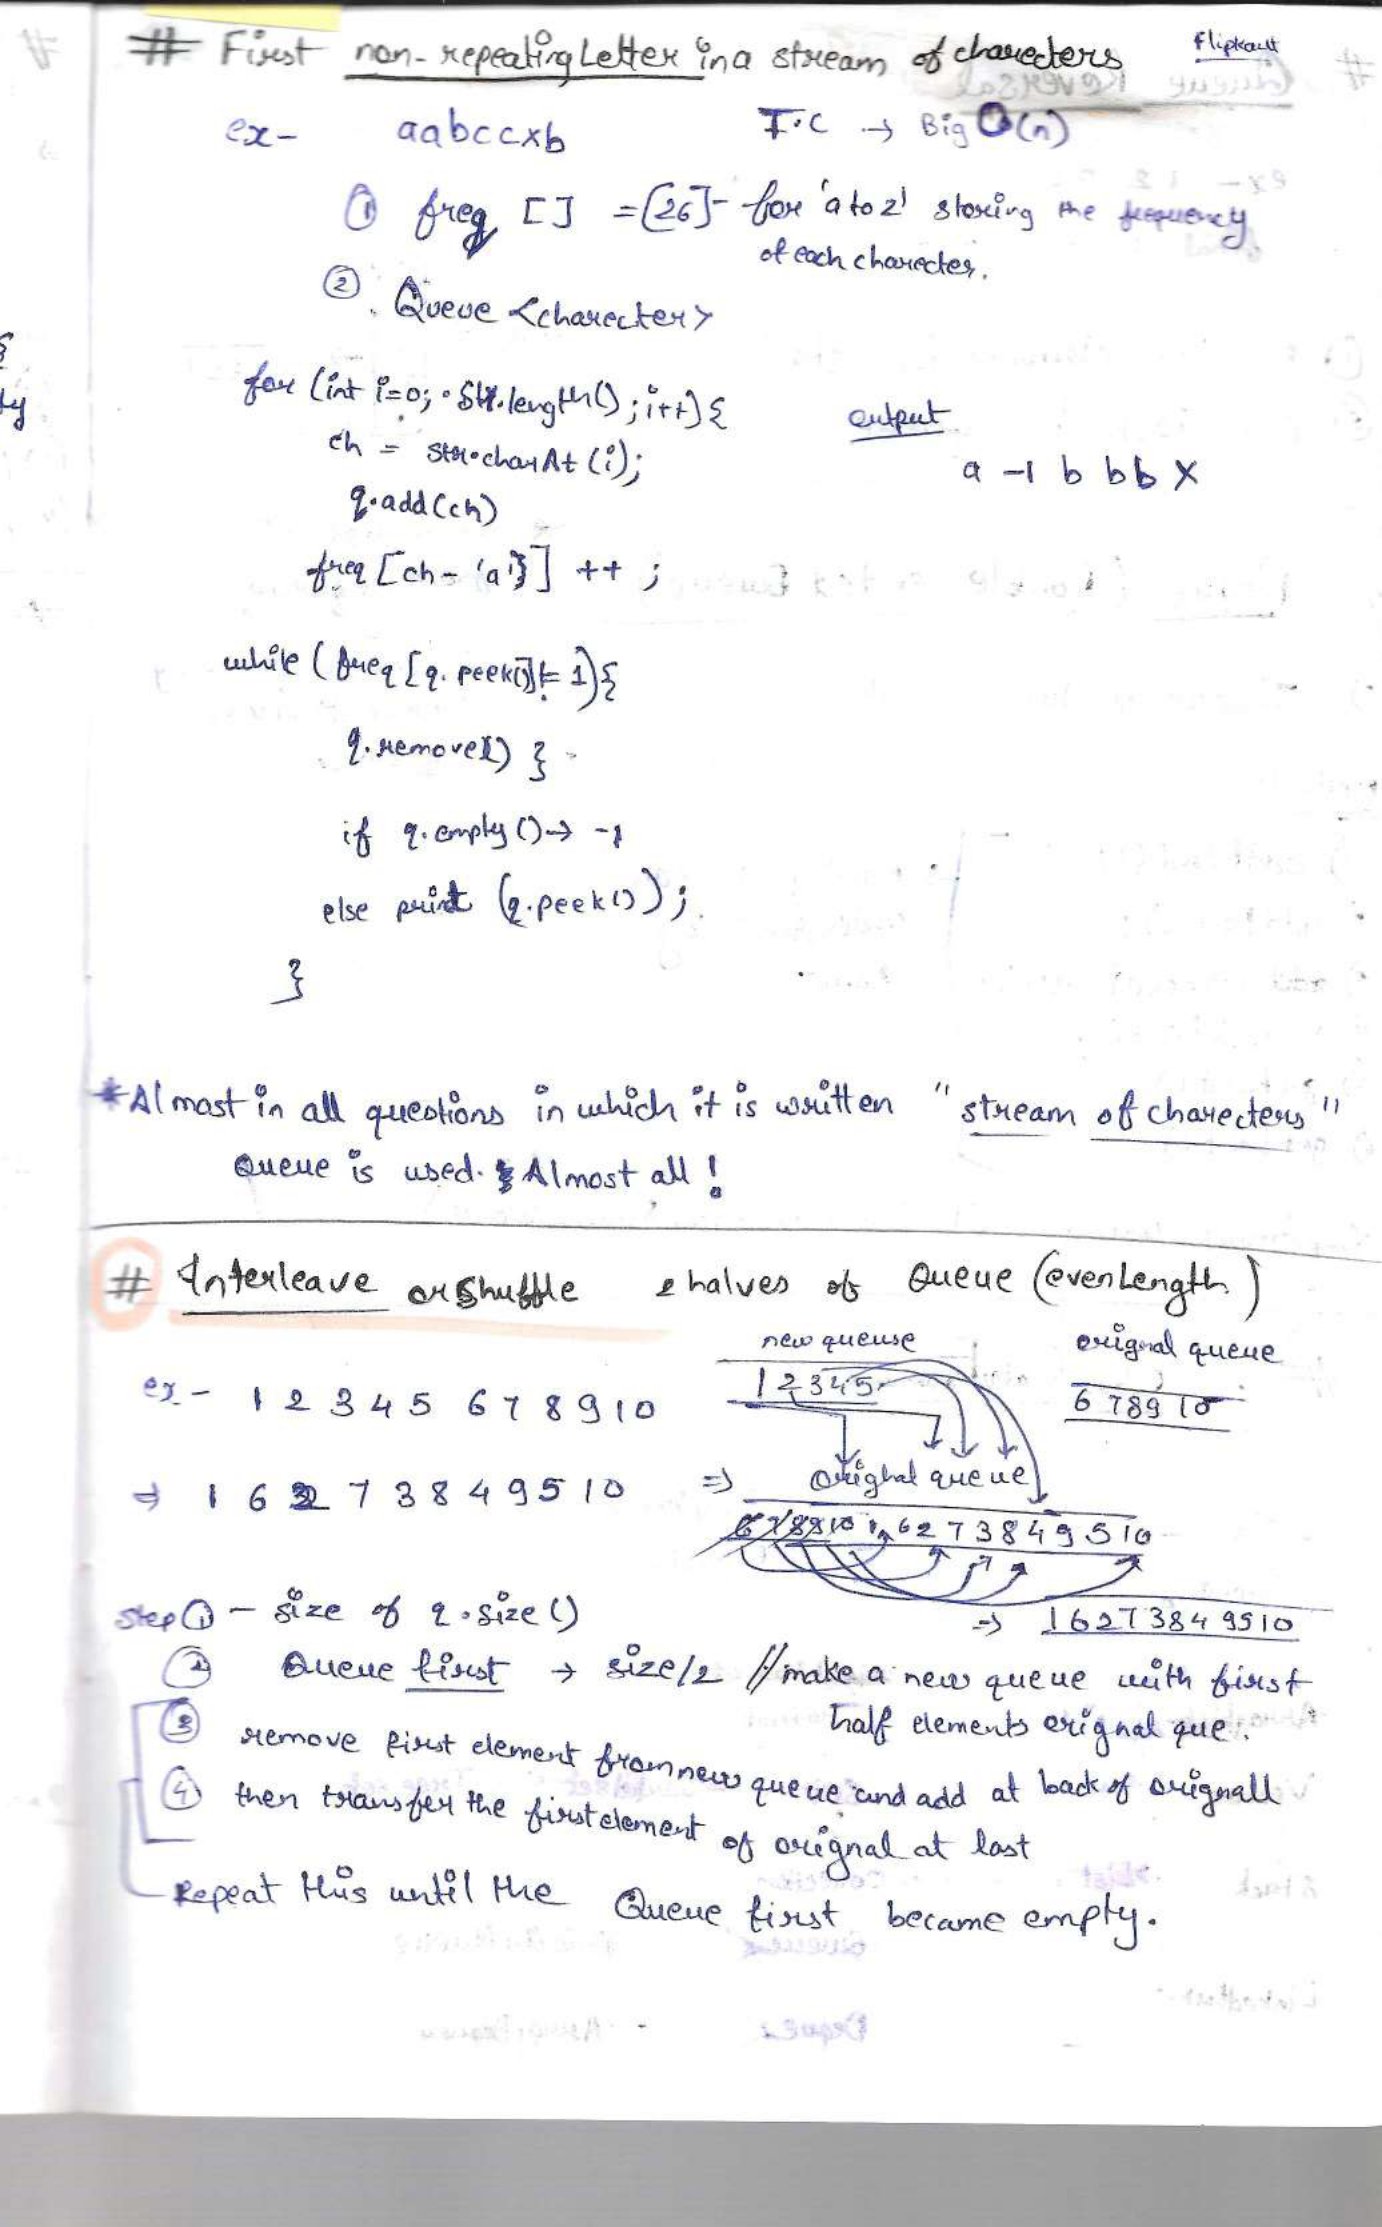 # First non-repeating Letter in a stream of charecters Flipkart
ex- aabccxb T.C → Big O(n)
① freq [] = [26] - for 'a to z' storing the frequency
of each charecter.
② . Queue <charecter>
for (int i=0; str.length(); i++) {
ch = str.charAt(i);
q.add(ch)
freq [ch - 'a'] ++ ;
while ( freq [q. peek()] != 1) {
q.remove() }
if q.empty () → -1
else print (q.peek());
}
output
a -1 b b b x
* Almost in all questions in which it is written "stream of charecters"
Queue is used. Almost all !
# Interleave or Shuffle 2 halves of Queue (even Length)
new queuse orignal queue
ex - 1 2 3 4 5 6 7 8 9 10 1 2 3 4 5 6 7 8 9 10
⇒ 1 6 2 7 3 8 4 9 5 10 ⇒ orighal queue
6 7 8 9 10 1 6 2 7 3 8 4 9 5 10
Step ① - size of q.size () ⇒ 1 6 2 7 3 8 4 9 5 10
② Queue first → size/2 // make a new queue with first
half elements orignal que.
③ remove first element from new queue and add at back of orignall
④ then transfer the first element of orignal at last
Repeat this until the Queue first became empty.